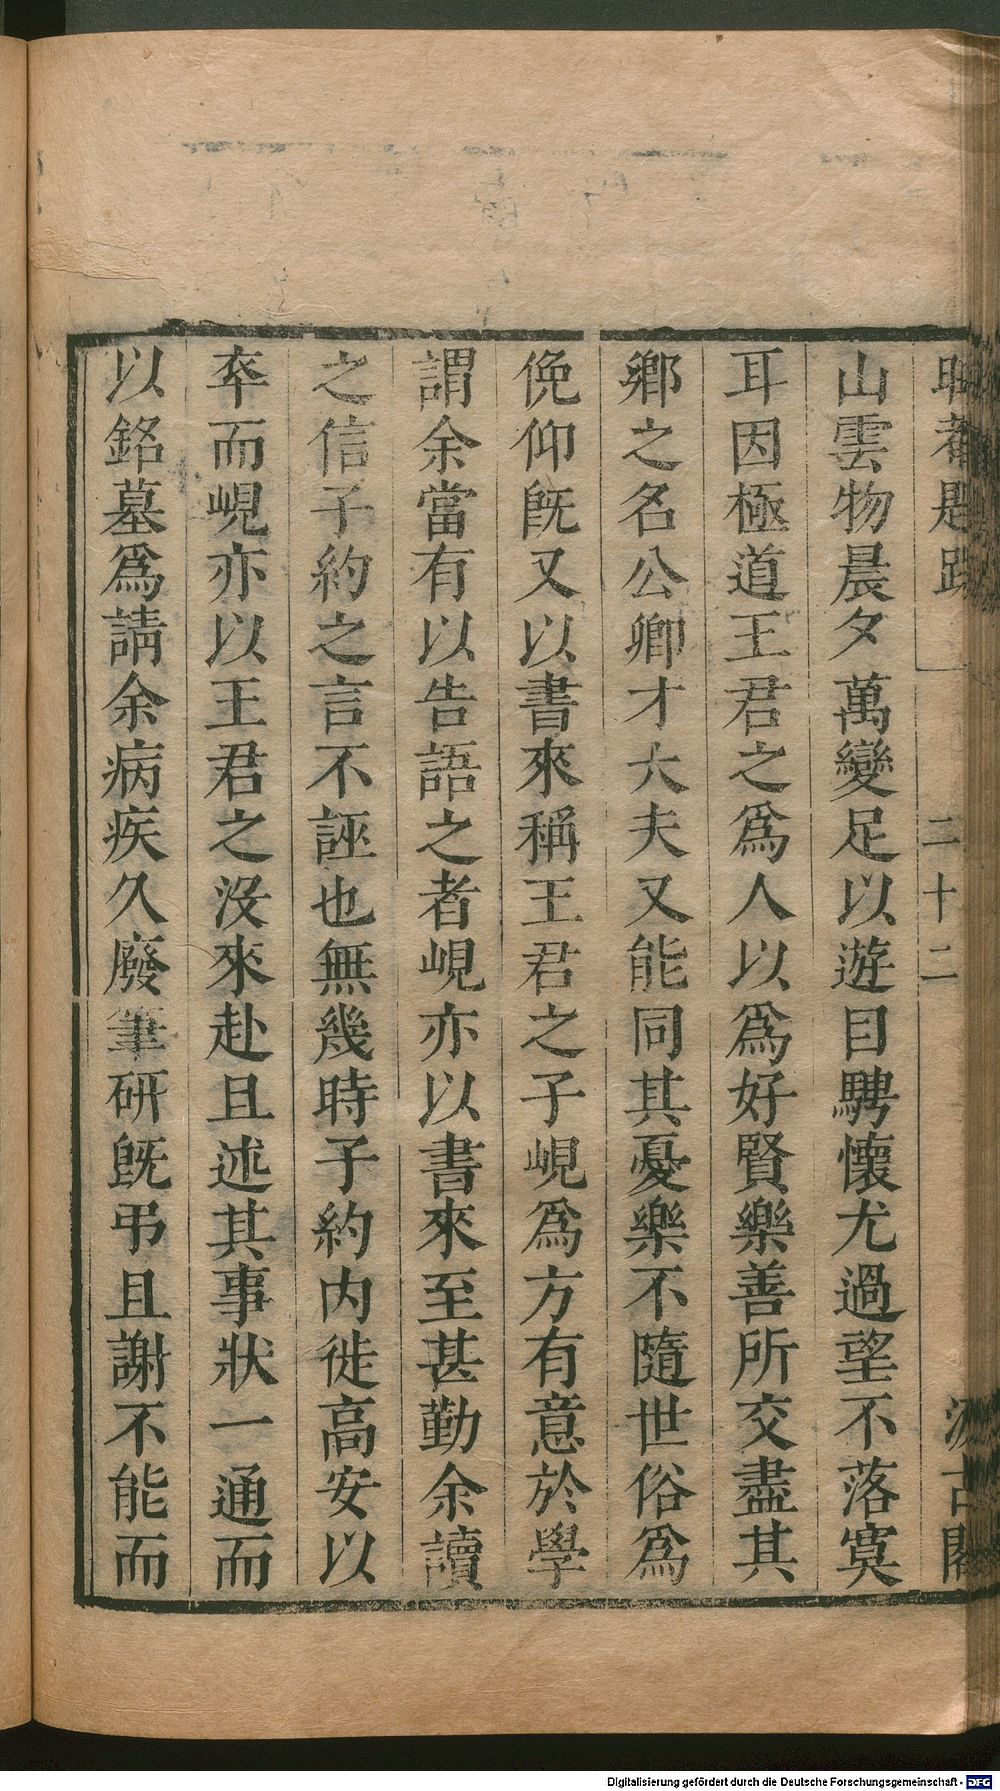 晦菴題跋 二十二 汲古閣
山雲物晨夕萬變足以遊目騁懷尤過望不落寞
耳因極道王君之爲人以爲好賢樂善所交盡其
鄉之名公卿才大夫又能同其憂樂不隨世俗爲
俛仰旣又以書來稱王君之子峴爲方有意於學
謂余當有以告語之者峴亦以書來至甚勤余讀
之信子約之言不誣也無幾時子約內徙高安以
卒而峴亦以王君之沒來赴且述其事狀一通而
以銘墓爲請余病疾久廢筆研旣弔且謝不能而
Digitalisierung gefördert durch die Deutsche Forschungsgemeinschaft - DFG